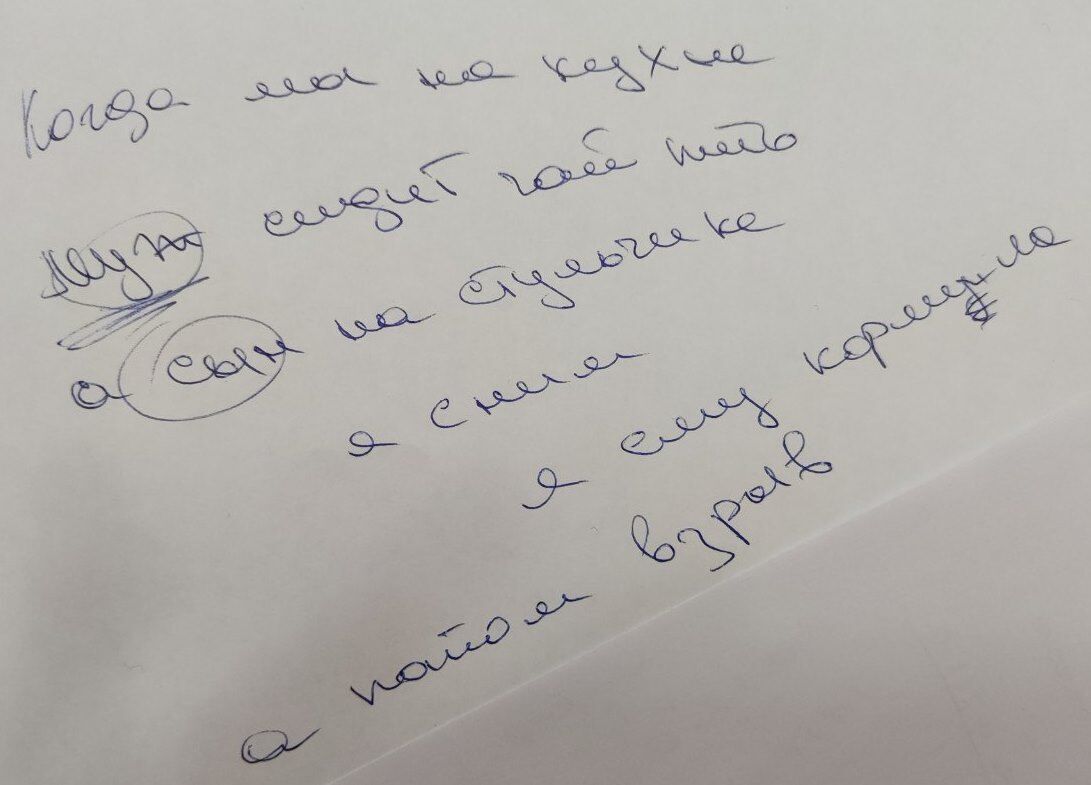 Когда ма на кухне
муж сидит чай пить
а сын на стульчике
я сним
я ему кормила
а патом взрыв